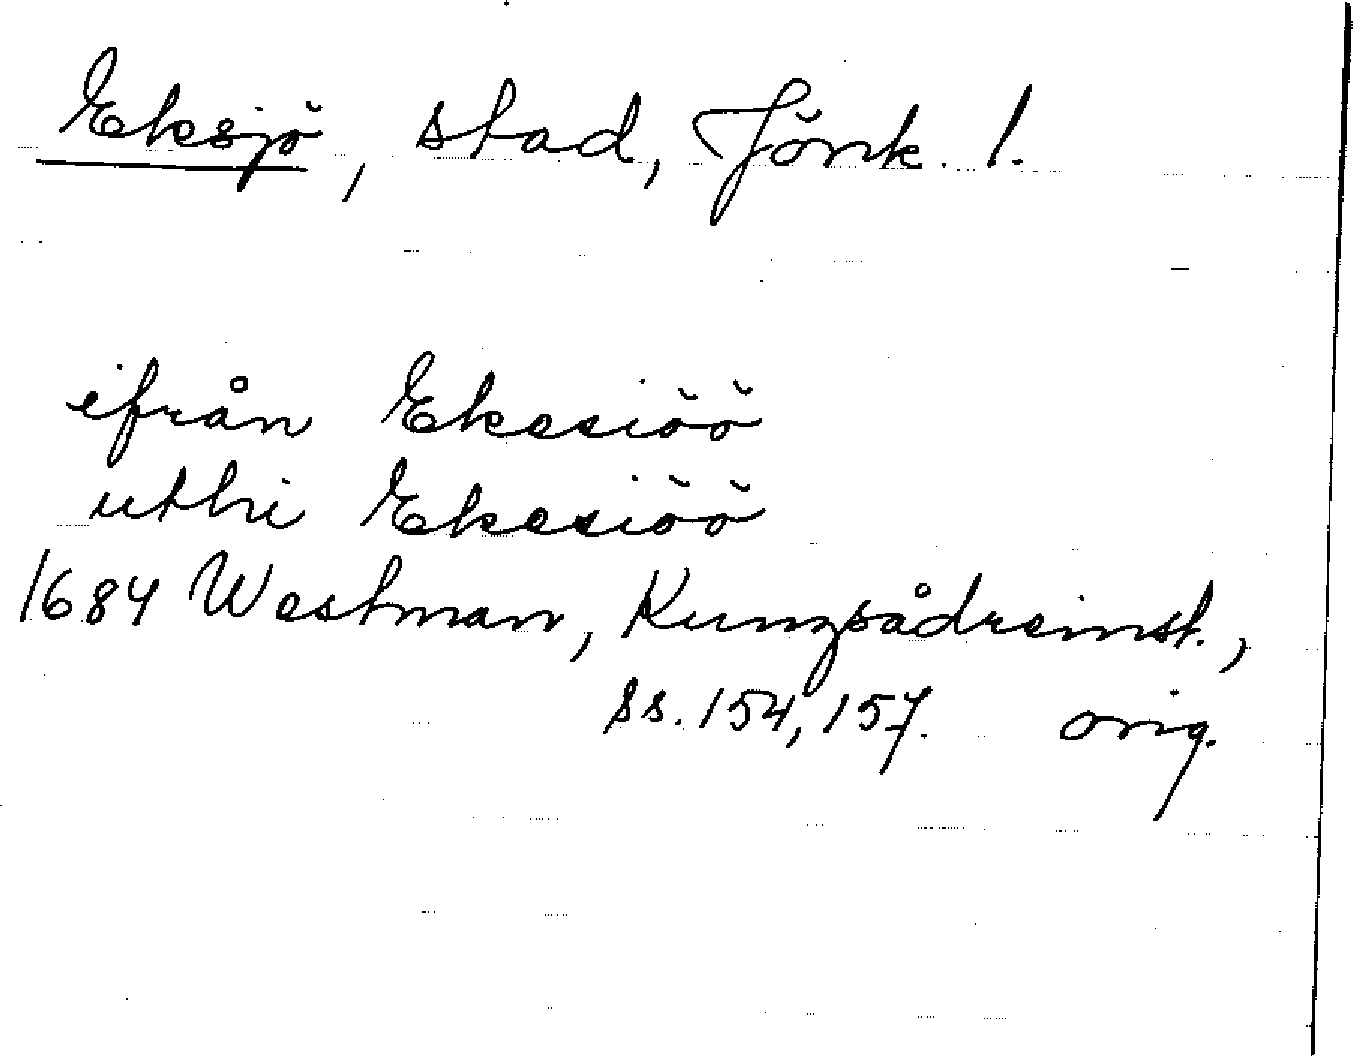 Eksjö, stad, Jönk. l.
ifrån Ekesiöö
uthi Ekesiöö
1684 Westman, Kungsådreinst.,
ss. 154, 157. orig.